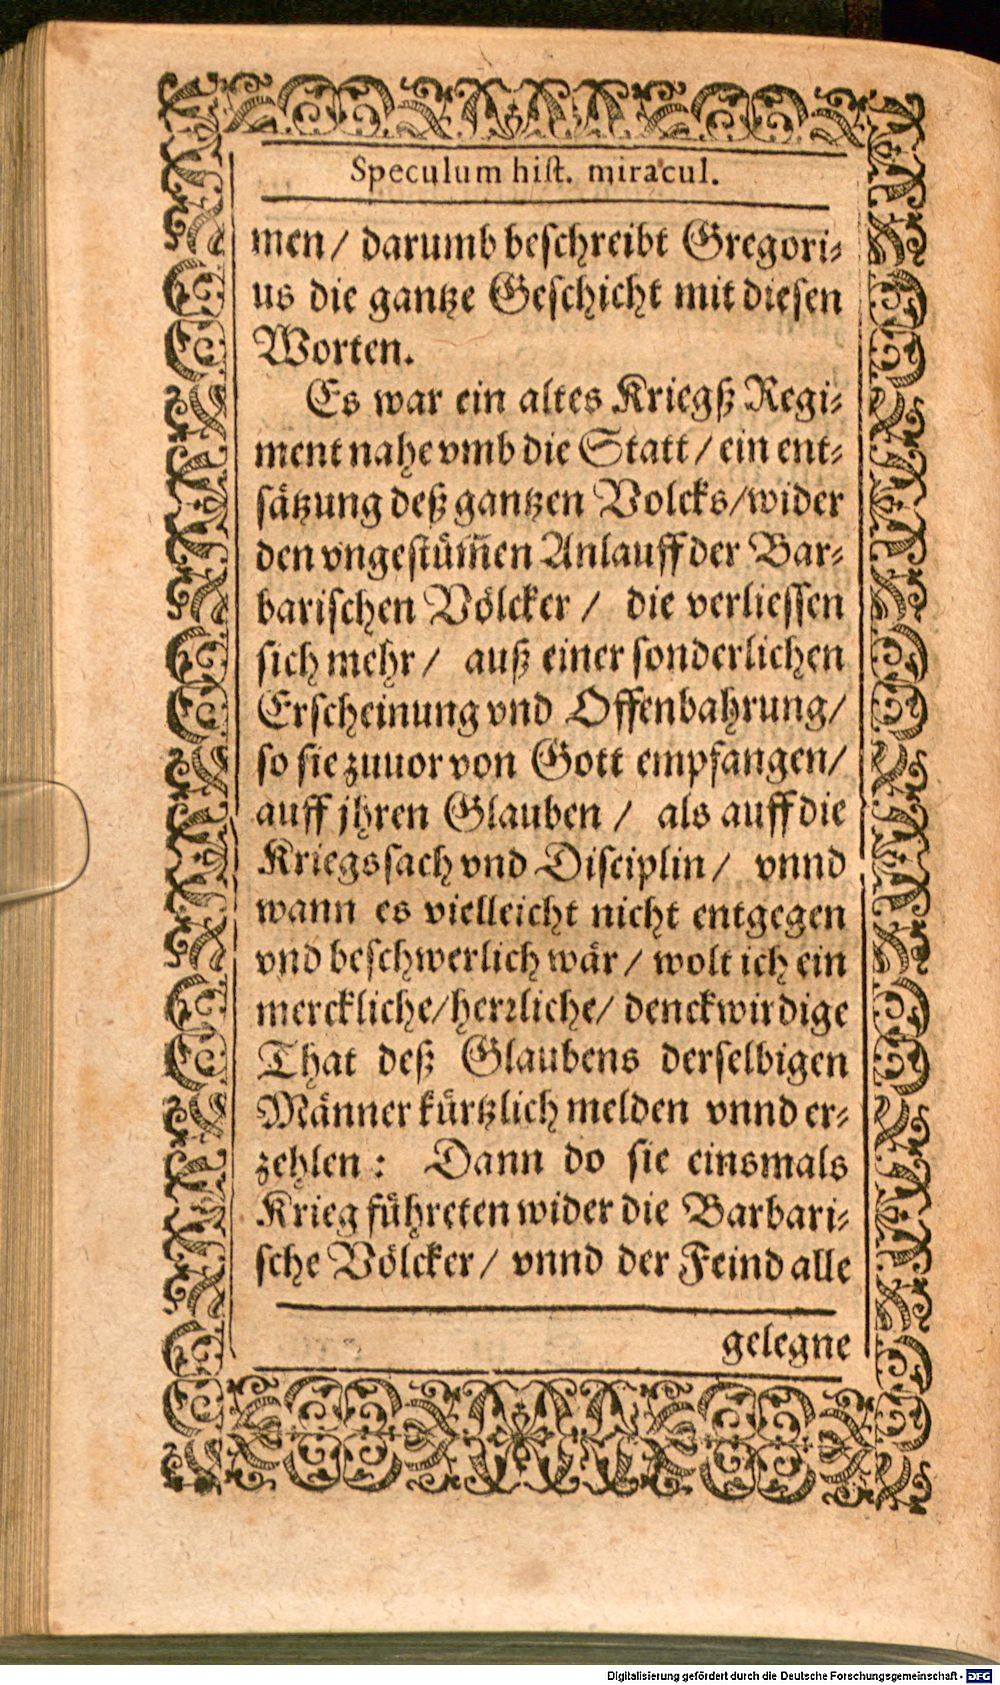 Speculum hist. miracul.
men/ darumb beschreibt Gregori⸗
us die gantze Geschicht mit diesen
Worten.
Es war ein altes Kriegß Regi⸗
ment nahe vmb die Statt/ ein ent⸗
sätzung deß gantzen Volcks/ wider
den vngestüm̃en Anlauff der Bar⸗
barischen Völcker/ die verliessen
sich mehr/ auß einer sonderlichen
Erscheinung vnd Offenbahrung/
so sie zuuor von Gott empfangen/
auff jhren Glauben/ als auff die
Kriegssach vnd Disciplin/ vnnd
wann es vielleicht nicht entgegen
vnd beschwerlich wär/ wolt ich ein
merckliche/ herꝛliche/ denckwirdige
That deß Glaubens derselbigen
Männer kürtzlich melden vnnd er⸗
zehlen: Dann do sie einsmals
Krieg führeten wider die Barbari⸗
sche Völcker/ vnnd der Feind alle
gelegne
Digitalisierung gefördert durch die Deutsche Forschungsgemeinschaft - DFG